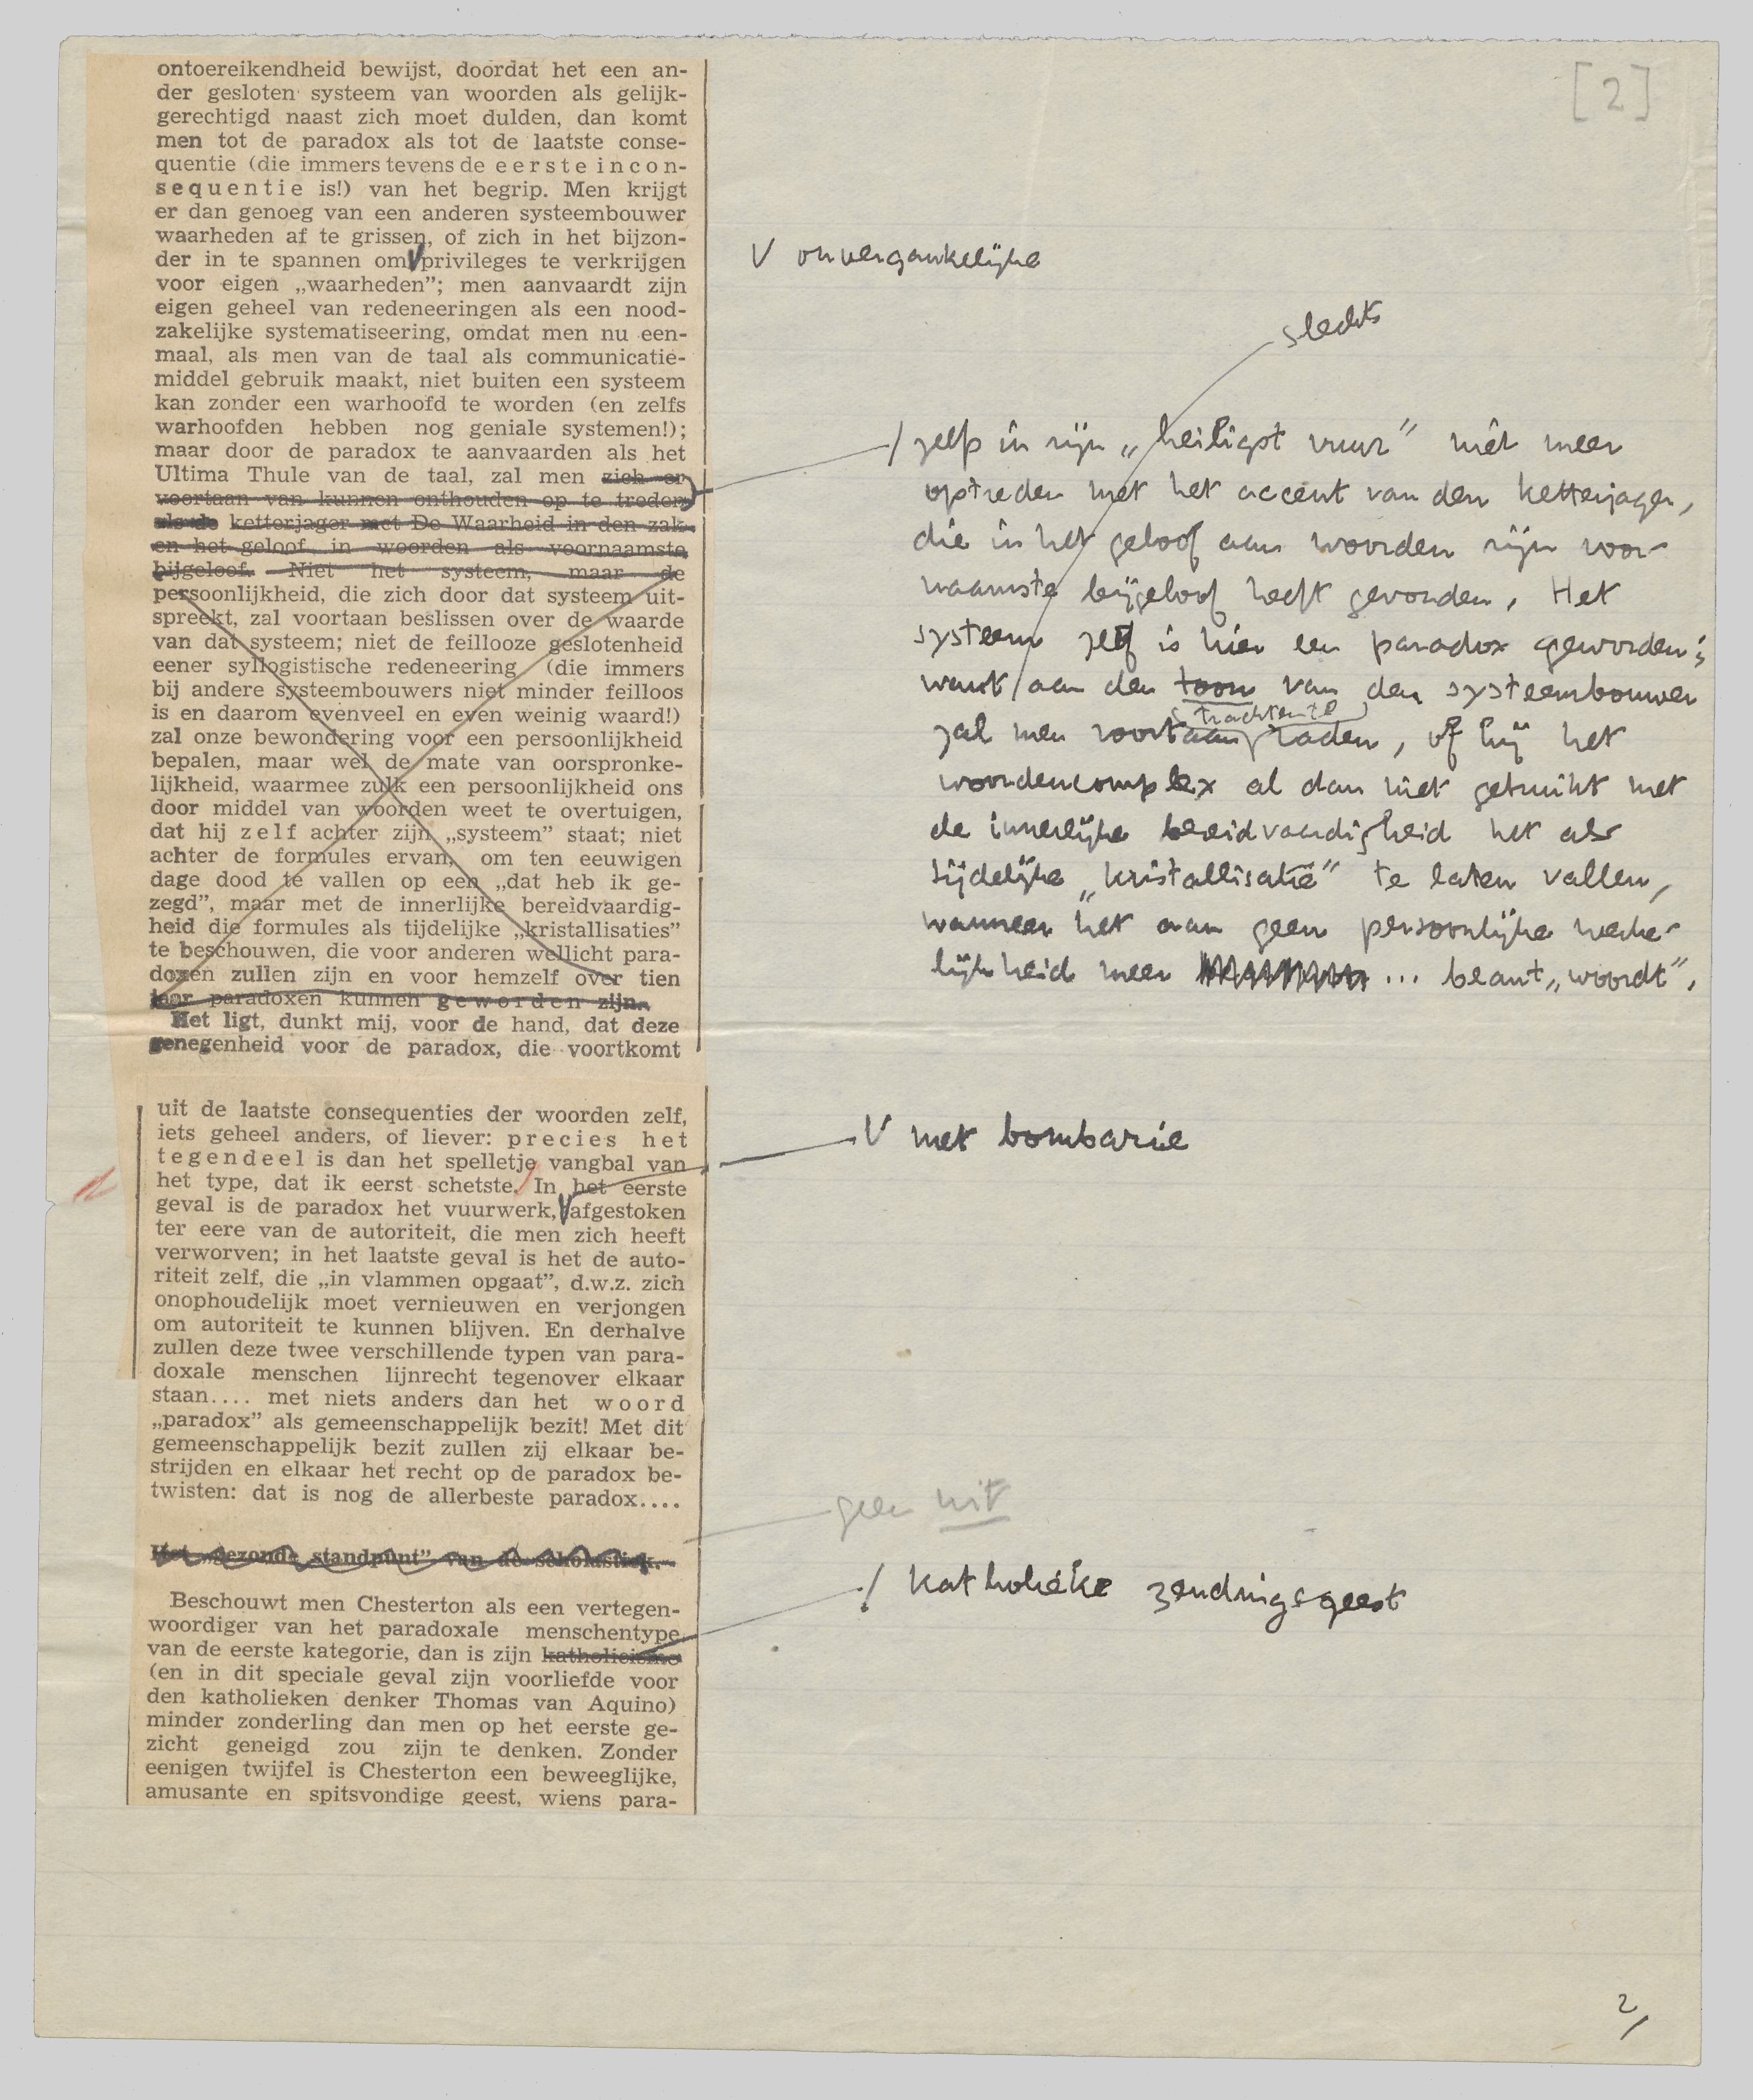 [2]
ontoereikendheid bewijst, doordat het een an-
der gesloten systeem van woorden als gelijk-
gerechtigd naast zich moet dulden, dan komt
men tot de paradox als tot de laatste conse-
quentie (die immers tevens de eerste incon-
sequentie is!) van het begrip. Men krijgt
er dan genoeg van een anderen systeembouwer
waarheden af te grissen, of zich in het bijzon-
der in te spannen om V privileges te verkrijgen
voor eigen „waarheden”; men aanvaardt zijn
eigen geheel van redeneeringen als een nood-
zakelijke systematiseering, omdat men nu een-
maal, als men van de taal als communicatie-
middel gebruik maakt, niet buiten een systeem
kan zonder een warhoofd te worden (en zelfs
warhoofden hebben nog geniale systemen!);
maar door de paradox te aanvaarden als het
Ultima Thule van de taal, zal men zich er
voortaan van kunnen onthouden op te treden
als de ketterjager met De Waarheid in den zak
en het geloof in woorden als voornaamste
bijgeloof. Niet het systeem, maar de
persoonlijkheid, die zich door dat systeem uit-
spreekt, zal voortaan beslissen over de waarde
van dat systeem; niet de feillooze geslotenheid
eener syllogistische redeneering (die immers
bij andere systeembouwers niet minder feilloos
is en daarom evenveel en even weinig waard!)
zal onze bewondering voor een persoonlijkheid
bepalen, maar wel de mate van oorspronke-
lijkheid, waarmee zulk een persoonlijkheid ons
door middel van woorden weet te overtuigen,
dat hij zelf achter zijn „systeem” staat; niet
achter de formules ervan, om ten eeuwigen
dage dood te vallen op een „dat heb ik ge-
zegd”, maar met de innerlijke bereidvaardig-
heid die formules als tijdelijke „kristallisaties”
te beschouwen, die voor anderen wellicht para-
doxen zullen zijn en voor hemzelf over tien
jaar paradoxen kunnen geworden zijn.
Het ligt, dunkt mij, voor de hand, dat deze
genegenheid voor de paradox, die voortkomt
uit de laatste consequenties der woorden zelf,
iets geheel anders, of liever: precies het
tegendeel is dan het spelletje vangbal van
het type, dat ik eerst schetste. In het eerste
geval is de paradox het vuurwerk, V afgestoken
ter eere van de autoriteit, die men zich heeft
verworven; in het laatste geval is het de auto-
riteit zelf, die „in vlammen opgaat”, d.w.z. zich
onophoudelijk moet vernieuwen en verjongen
om autoriteit te kunnen blijven. En derhalve
zullen deze twee verschillende typen van para-
doxale menschen lijnrecht tegenover elkaar
staan.... met niets anders dan het woord
„paradox” als gemeenschappelijk bezit! Met dit
gemeenschappelijk bezit zullen zij elkaar be-
strijden en elkaar het recht op de paradox be-
twisten: dat is nog de allerbeste paradox....
Het „gezonde standpunt” van de scholastiek.
Beschouwt men Chesterton als een vertegen-
woordiger van het paradoxale menschentype
van de eerste kategorie, dan is zijn katholicisme
(en in dit speciale geval zijn voorliefde voor
den katholieken denker Thomas van Aquino)
minder zonderling dan men op het eerste ge-
zicht geneigd zou zijn te denken. Zonder
eenigen twijfel is Chesterton een beweeglijke,
amusante en spitsvondige geest, wiens para-
V onvergankelijke
slechts
/ zelfs in zijn „heiligst vuur” niet meer
optreden met het accent van den ketterjager,
die in het geloof aan woorden zijn voor-
naamste bijgeloof heeft gevonden. Het
systeem zelf is hier een paradox geworden;
want / aan den toon van den systeembouwer
trachten te
zal men voortaan raden, of hij het
woordencomplex al dan niet gebruikt met
de innerlijke bereidvaardigheid het als
tijdelijke „kristallisatie” te laten vallen,
wanneer het aan geen persoonlijke werke-
lijkheid meer ... beant„woordt”.
V met bombarie
geen wit
/ katholieke zendingsgeest
2/